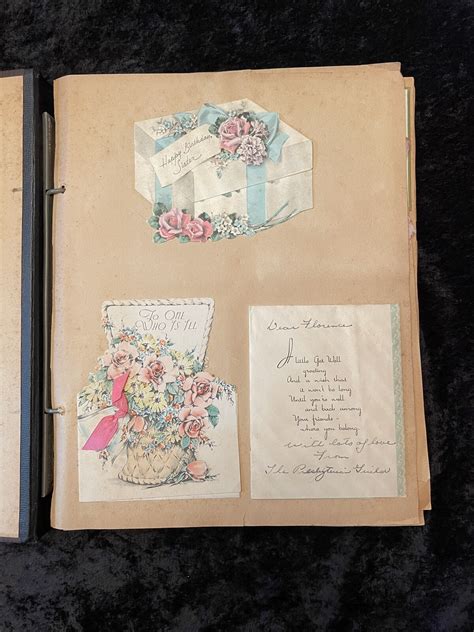 Happy Birthday
Sister
To One
Who Is Ill
Dear Florence
A little Get Well
greeting
And a wish that
it won't be long
Until you're well
and back among
Your friends -
where you belong.
With lots of love
From
The Presbyterian